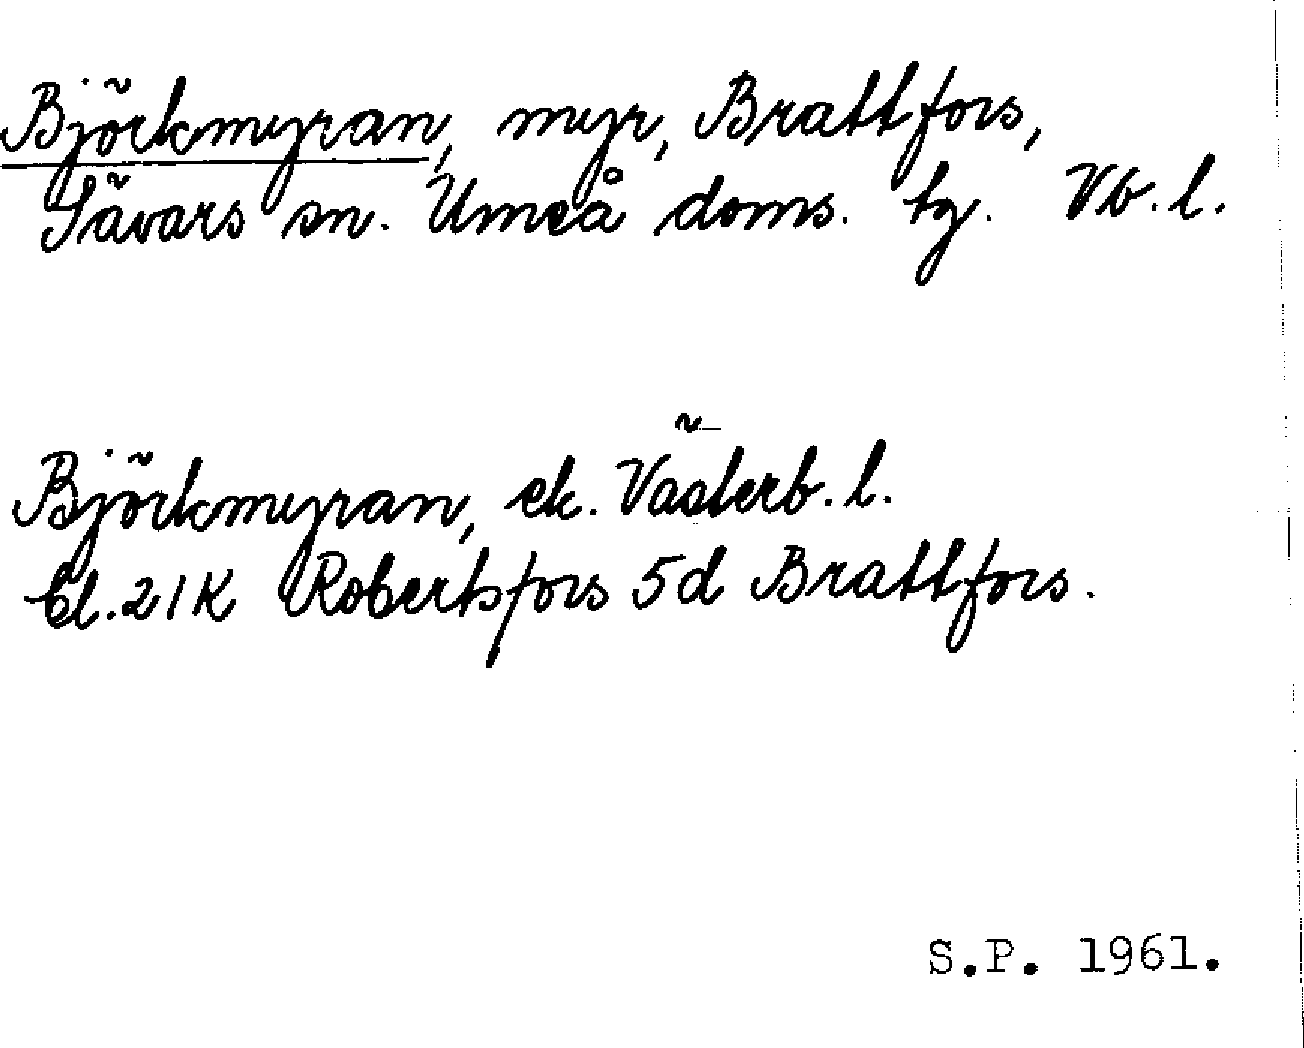 Björkmyran, myr, Brattfors,
Sävars sn. Umeå doms. tg. Vb. l.
Björkmyran, ek. Västerb. l.
bl. 21K Robertsfors 5d Brattfors.
S.P. 1961.